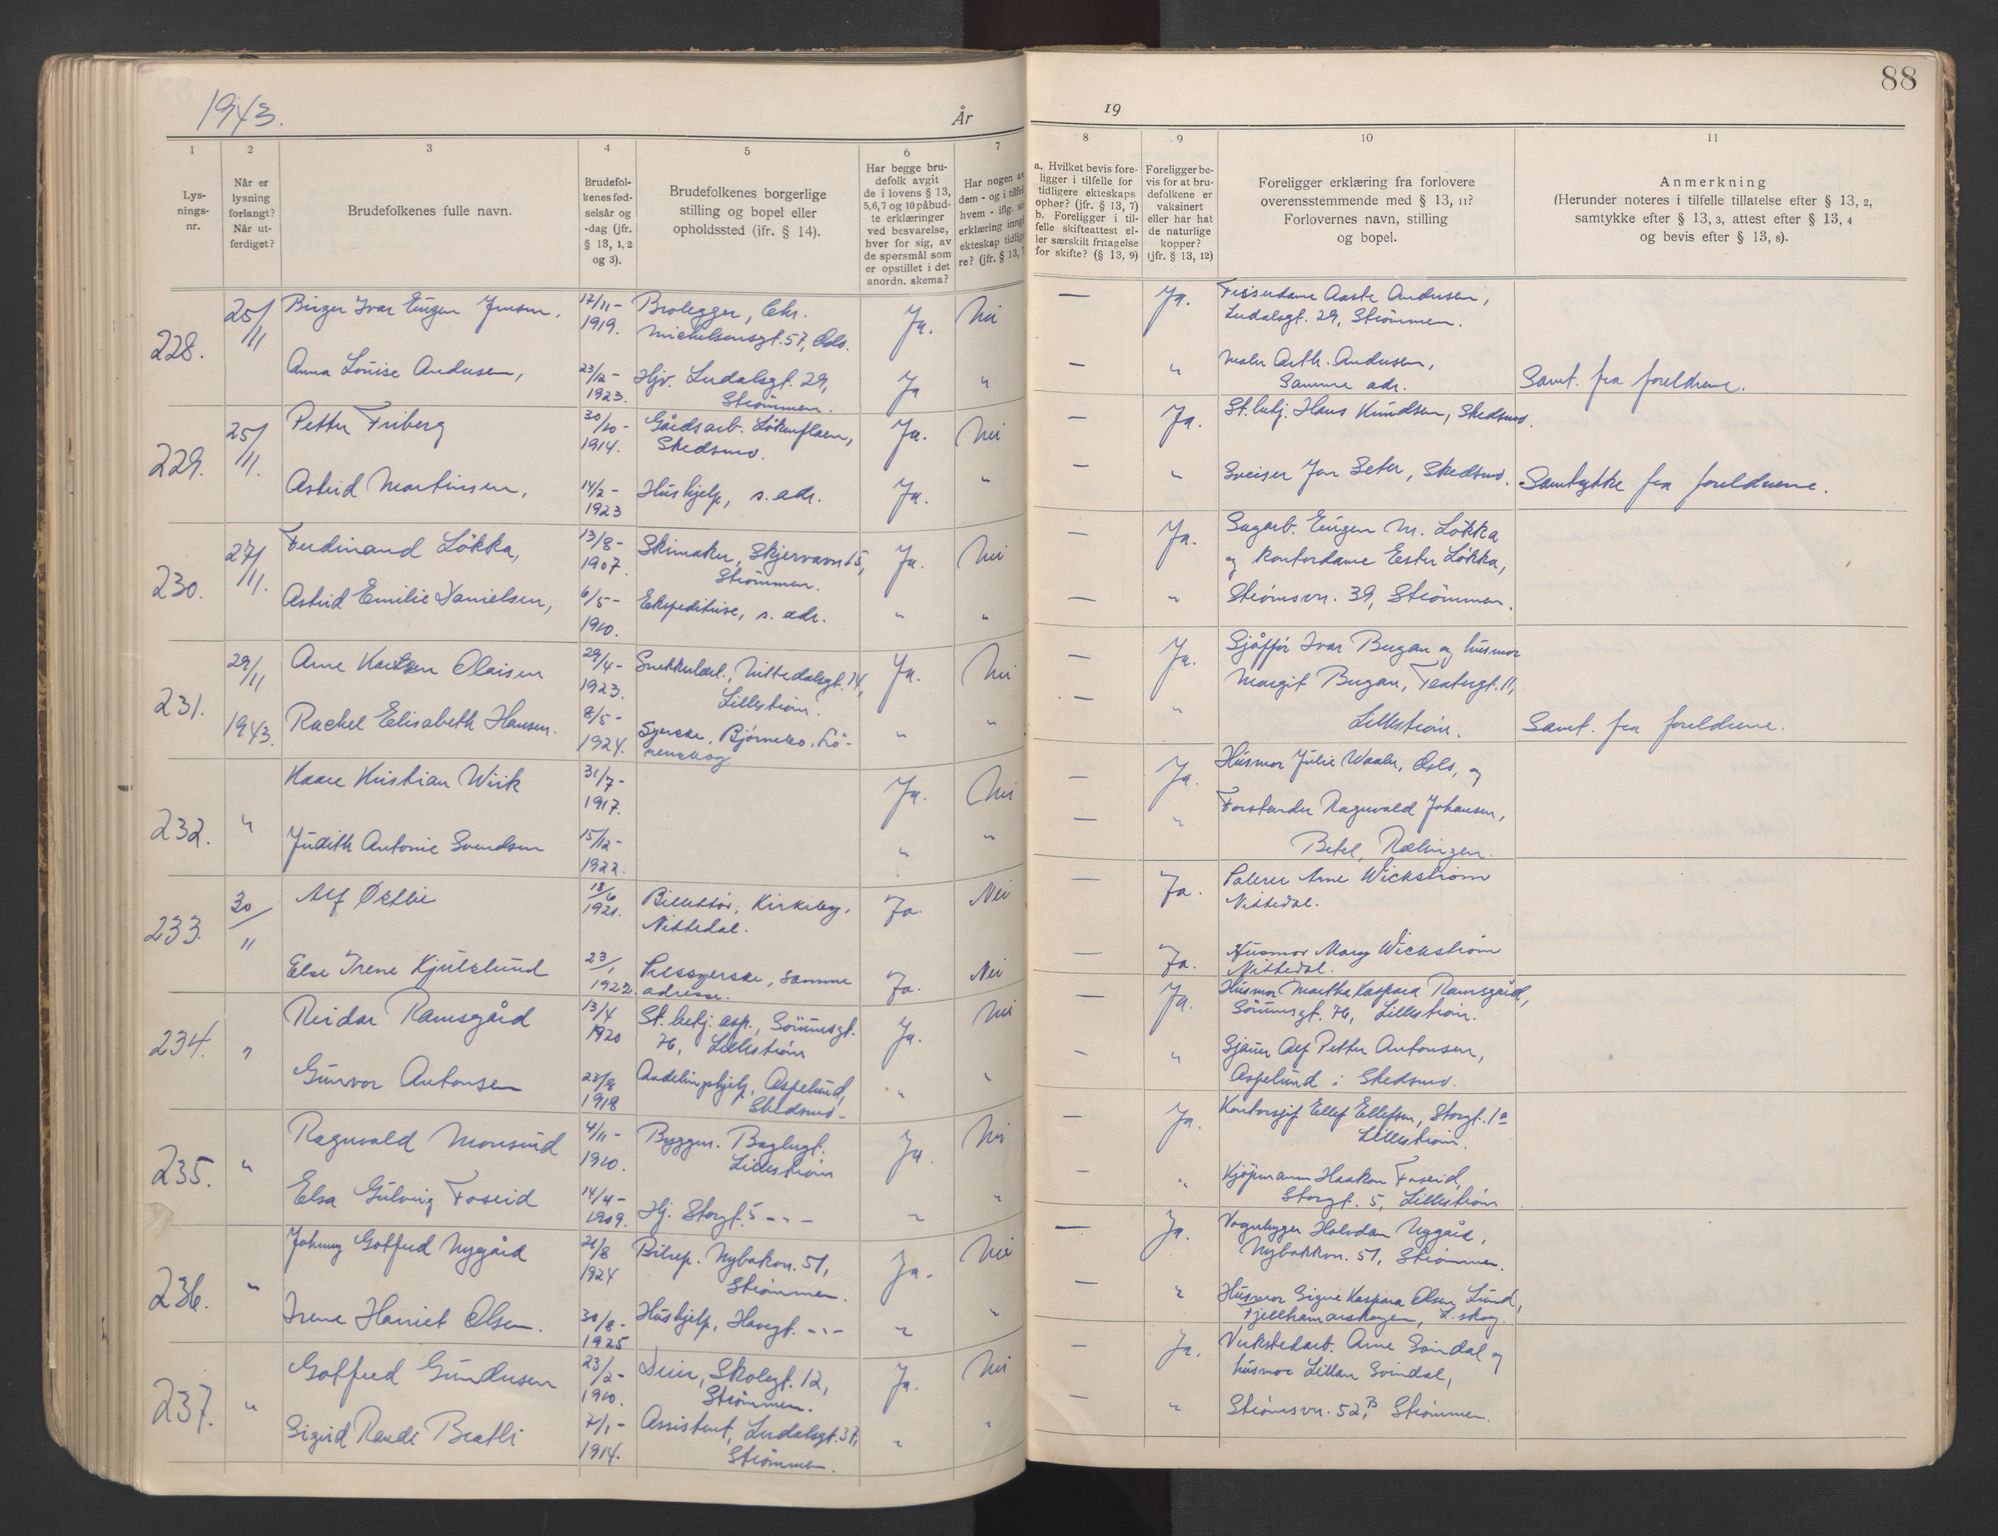 88
1943.
År
19
1
2
3
4
5
6
7
8
9
10
11
Lys-
nings-
nr.
Når er
lysning
forlangt?
Når ut-
ferdiget?
Brudefolkenes fulle navn.
Brudefol-
kenes fød-
selsår og
-dag (jfr.
§ 13, 1, 2
og 3).
Brudefolkenes borgerlige
stilling og bopel eller
opholdssted (jfr. § 14).
Har begge bru-
defolk avgit
de i lovens § 13,
5,6,7 og 10 påbud-
te erklæringer
ved besvarelse,
hver for sig, av
de spørsmål som
er opstillet i det
anordn. skema?
Har nogen av
dem - og i tilfel
hvem - iflg. si
erklæring inng
ekteskap tidlig
re? (jfr. § 13, 7
a. Hvilket bevis fore-
ligger i tilfelle for
tidligere ekteskaps
ophør? (jfr. § 13, 7)
b. Foreligger i til-
felle skifteattest el-
ler særskilt fritagelse
for skifte? (§ 13, 9)
Foreligger be-
vis for at bru-
defolkene er
vaksinert
eller har hat
de naturlige
kopper?
(jfr. § 13, 12)
Foreligger erklæring fra forlovere
overensstemmende med § 13, 11?
Forlovernes navn, stilling
og bopel.
Anmerkning
(Herunder noteres i tilfelle tillatelse efter § 13, 2,
samtykke efter § 13, 3, attest efter § 13, 4
og bevis efter § 13, 8).
228.
25/11
Birger Ivar Eugen Jensen,
17/11-
1919.
Brolegger, Chr.
Michelsensgt. 57, Oslo.
Ja.
Nei
—
Ja.
Frisørdame Aaste Andersen,
Ludalsgt. 29, Strømmen.
Anna Louise Andersen,
23/2-
1923.
Hjv. Ludalsgt. 29,
Strømmen.
Ja
"
—
"
Maler Arth. Andersen,
Samme adr.
Samt. fra foreldrene.
229.
25/11.
Petter Friberg
30/10-
1914.
Gårdsarb. Løkenflaen,
Skedsmo.
Ja.
Nei
—
Ja.
St.betj. Hans Knudsen, Skedsmo.
Astrid Martinsen,
14/2-
1923
Hushjelp, s. adr.
Ja.
"
—
"
Sveiser Jon Seter, Skedsmo.
Samtykke fra foreldrene.
230.
27/11.
Ferdinand Løkka,
13/8-
1907.
Skimaker, Skjervavn 15,
Strømmen.
Ja.
Nei
—
Ja.
Sagarb. Eugen M. Løkka
og kontordame Ester Løkka,
Astrid Emilie Danielsen,
6/5-
1910.
Ekspeditrise, s. adr.
"
"
—
"
Strømsvn. 39, Strømmen.
231.
29/11
1943.
Arne Karlsen Olaisen
29/4-
1923.
Snekkerlærl., Nittedalsgt. 14,
Lillestrøm.
Ja.
Nei
—
Ja.
Sjåffør Ivar Bugan og husmor
Margit Bugan, Teatergt. 11,
Rachel Elisabeth Hansen.
8/5-
1924.
Syerske, Bjørnebo, Lø-
renskog
"
"
—
"
Lillestrøm.
Samt. fra foreldrene.
232.
"
Kaare Kristian Wiik
31/7-
1917.
Ja.
Nei
—
Ja.
Husmor Julie Waaler, Oslo, og
Forstander Ragnvald Johansen,
Judith Antonie Svendsen
15/12-
1922.
"
"
—
"
Betel, Rælingen.
233.
30/11
Alf Østbie
13/6
1921.
Bilutstør, Kirkeby,
Nittedal.
Ja.
Nei
—
Ja.
Polerer Arne Wickstrøm
Nittedal.
Else Irene Kjulslund
23/1
1922.
Pelssyerske, samme
adresse.
Ja.
Nei
—
Ja.
Husmor Mary Wickstrøm
Nittedal.
234.
"
Reidar Ramsgård
13/4
1920
St.betj. asp., Sørumsgt.
76, Lillestrøm
Ja.
Nei
—
Ja.
Husmor Martha Kaspara Ramsgård,
Sørumsgt. 76, Lillestrøm.
Gunvor Antonsen
23/8
1918
Avdelingshjelp, Aspelund,
Skedsmo.
"
"
-
"
Sjauer Alf Petter Antonsen,
Aspelund i Skedsmo.
235.
"
Ragnvald Monsrud
4/11-
1910.
Byggm. Baglergt.
Lillestrøm
Ja.
Nei
—
Ja.
Kontorsjef Ellef Ellefsen, Storgt. 1a
Lillestrøm.
Elsa Gulvig Foseid
14/4-
1909.
Hj. Storgt. 5 -"-
"
"
-
"
Kjøpmann Haakon Foseid,
Storgt. 5, Lillestrøm
236.
"
Johnny Gotfred Nygård
21/8
1924
Bilrep. Nybakkvn. 51,
Strømmen.
Ja.
Nei
—
Ja.
Vognbygger Halvdan Nygård,
Nybakkvn. 51, Strømmen.
Irene Harriet Olsen.
30/8-
1925
Hushjelp, Havegt. -"-
"
"
—
"
Husmor Signe Kaspara Olsen Lund,
Fjellhamarskogen, L.skog.
237.
"
Gotfred Gundersen
23/2-
1910.
Dreier, Skolegt. 12,
Strømmen.
Ja.
Nei
—
Ja.
Verkstedarb. Arne Svindal og
husmor Lillan Svindal,
Sigrid Randi Bratli
7/1-
1914.
Assistent, Ludalsgt. 37,
Strømmen.
"
"
—
"
Strømsvn. 52B, Strømmen.